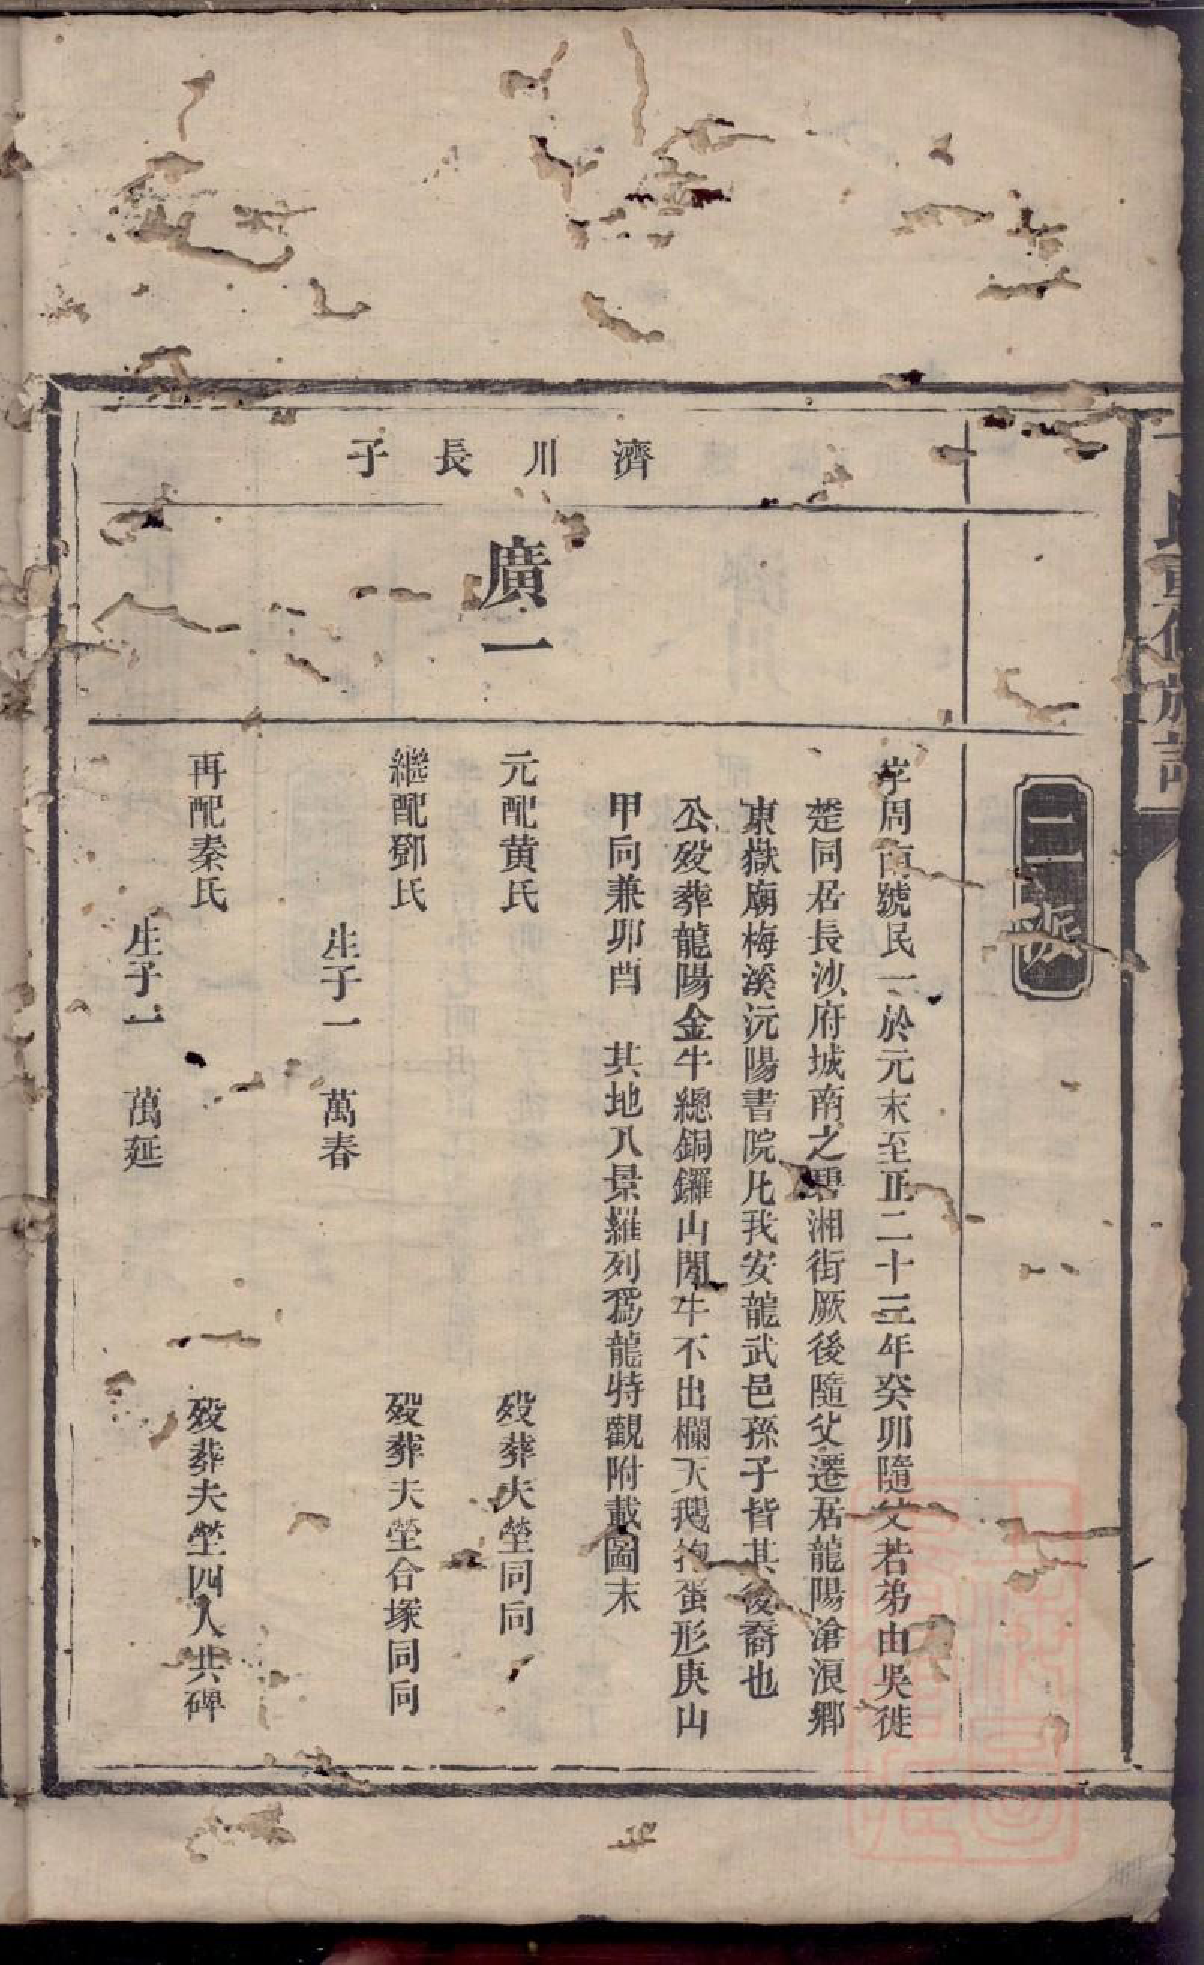 重修族譜
二派
濟川長子
廣一
字周南號民一於元末至正二十三年癸卯隨父若弟由吳徙
楚同居長沙府城南之碧湘街厥後隨父遷居龍陽滄浪鄉
東嶽廟梅溪沅陽書院凡我安龍武邑孫子皆其後裔也
公歿葬龍陽金牛總銅鑼山閑牛不出欄天鵝抱蛋形庚山
甲向兼卯酉 其地八景羅列爲龍特觀附載圖末
元配黄氏 歿葬夫塋同向
繼配鄧氏 歿葬夫塋合塚同向
生子一 萬春
再配秦氏 歿葬夫塋四人共碑
生子一 萬延